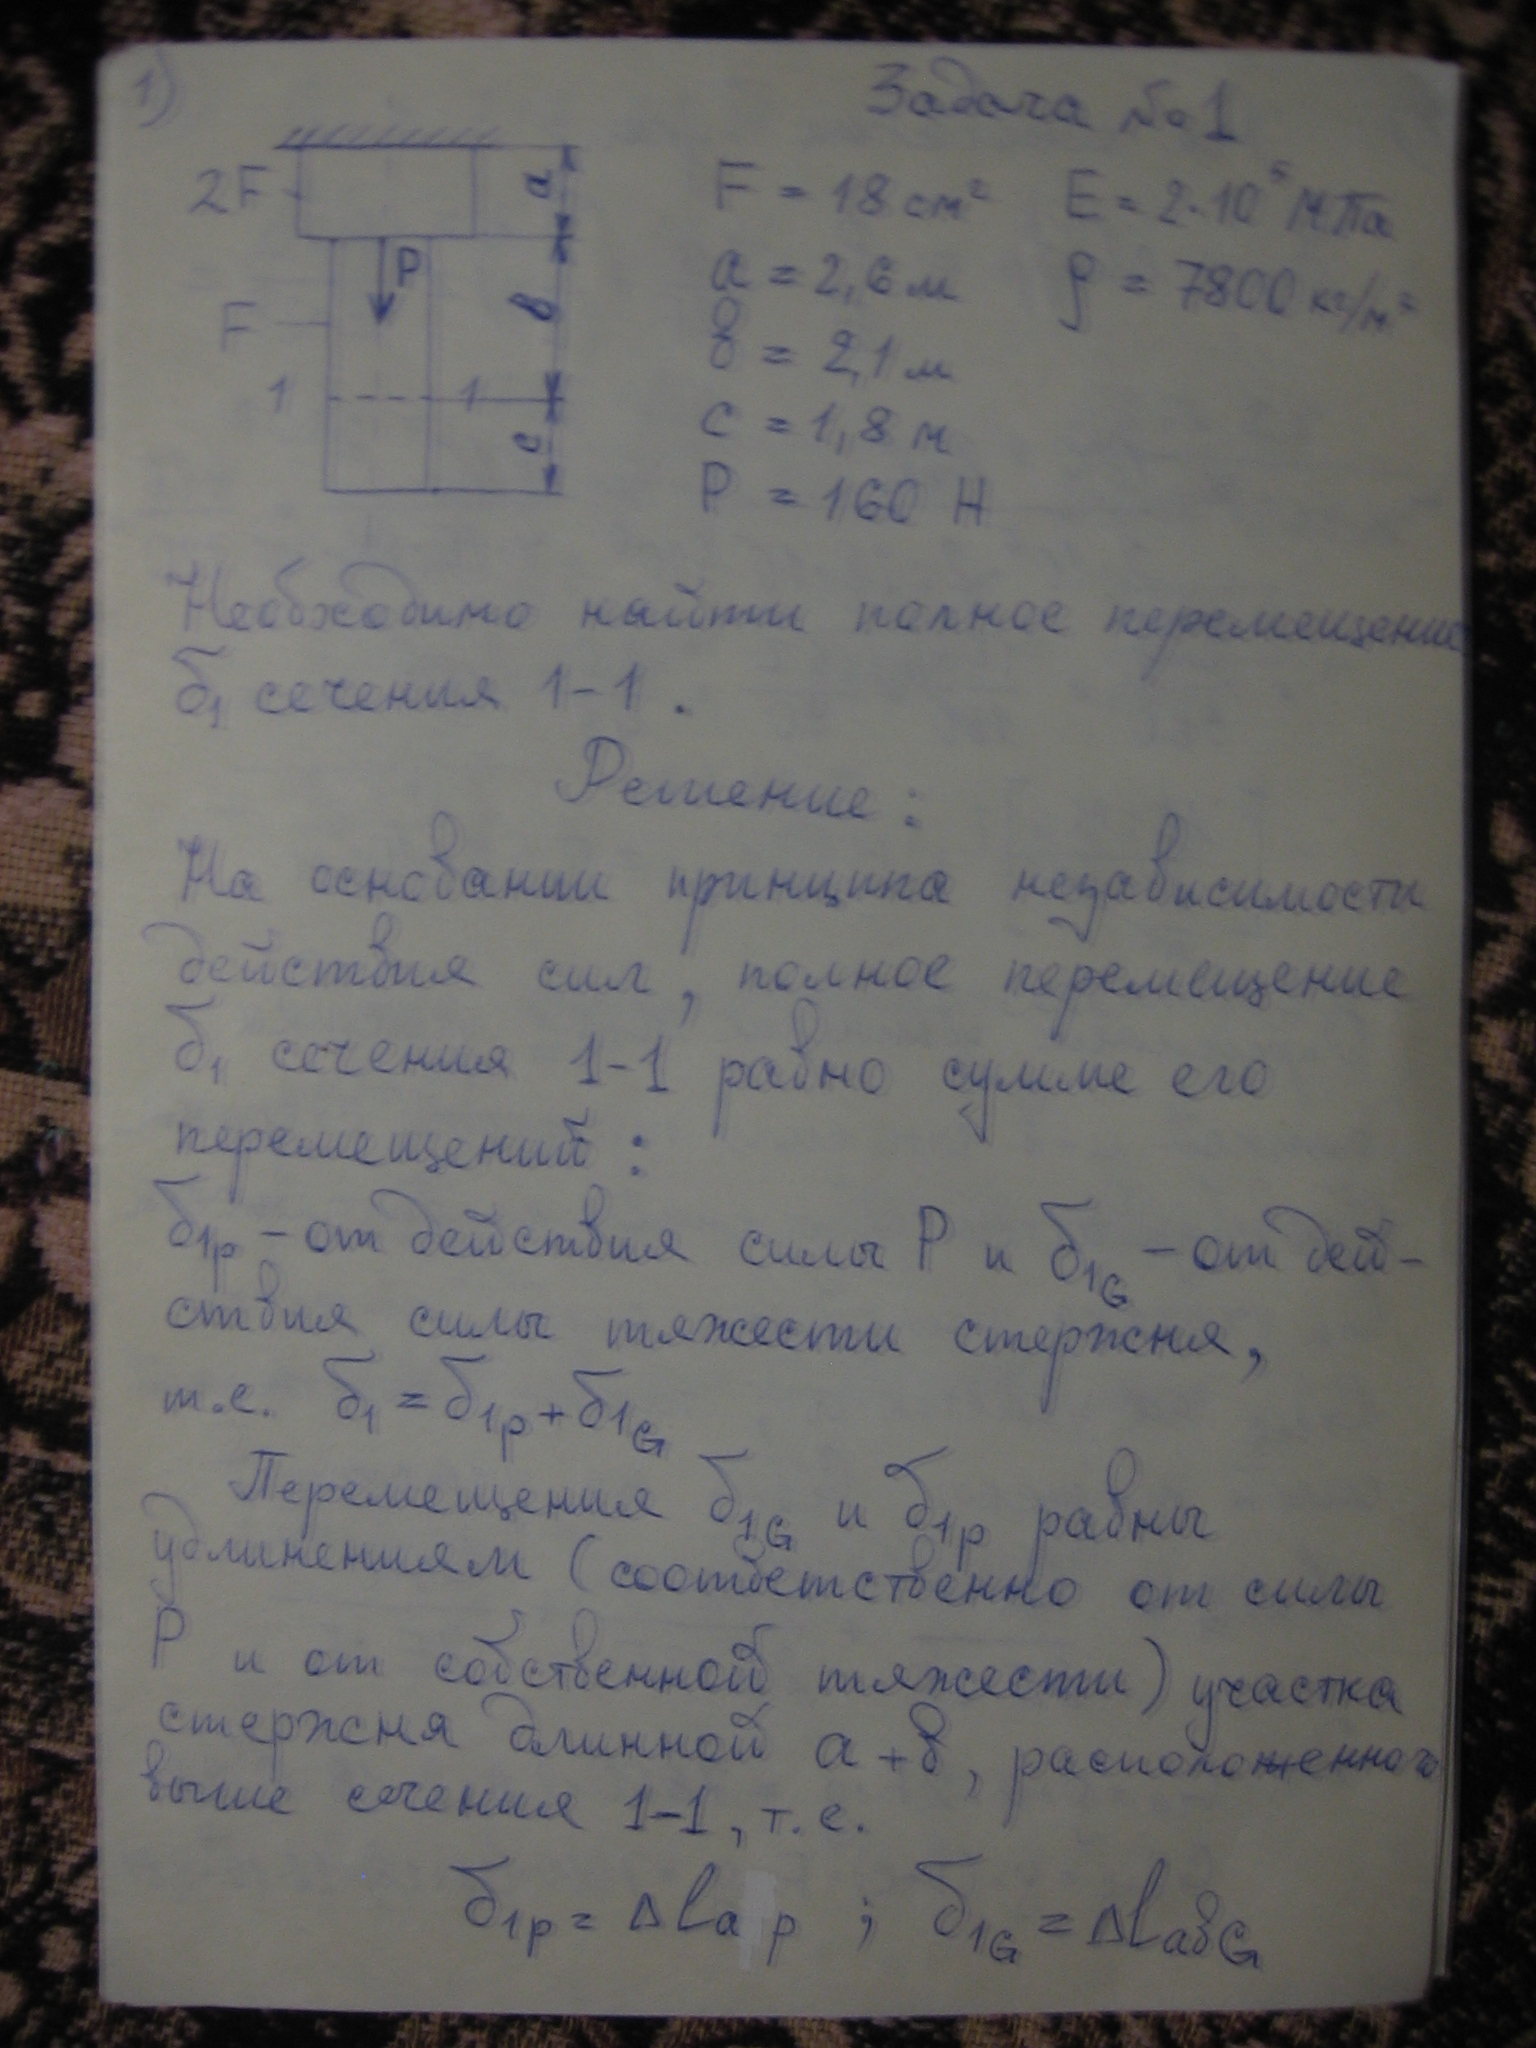 1)
Задача № 1
2F
F
1
1
P
a
в
c
F = 18 см² E = 2·10⁵ МПа
a = 2,6 м ρ = 7800 кг/м³
в = 2,1 м
c = 1,8 м
P = 160 Н
Необходимо найти полное перемещение
δ₁ сечения 1-1.
Решение:
На основании принципа независимости
действия сил, полное перемещение
δ₁ сечения 1-1 равно сумме его
перемещений:
δ₁ₚ - от действия силы P и δ₁G - от дей-
ствия силы тяжести стержня,
т.е. δ₁ = δ₁ₚ + δ₁G
Перемещения δ₁G и δ₁ₚ равны
удлинениям (соответственно от силы
P и от собственной тяжести) участка
стержня длинной a + в, расположенного
выше сечения 1-1, т.е.
δ₁ₚ = Δlaₚ ; δ₁G = ΔlавG